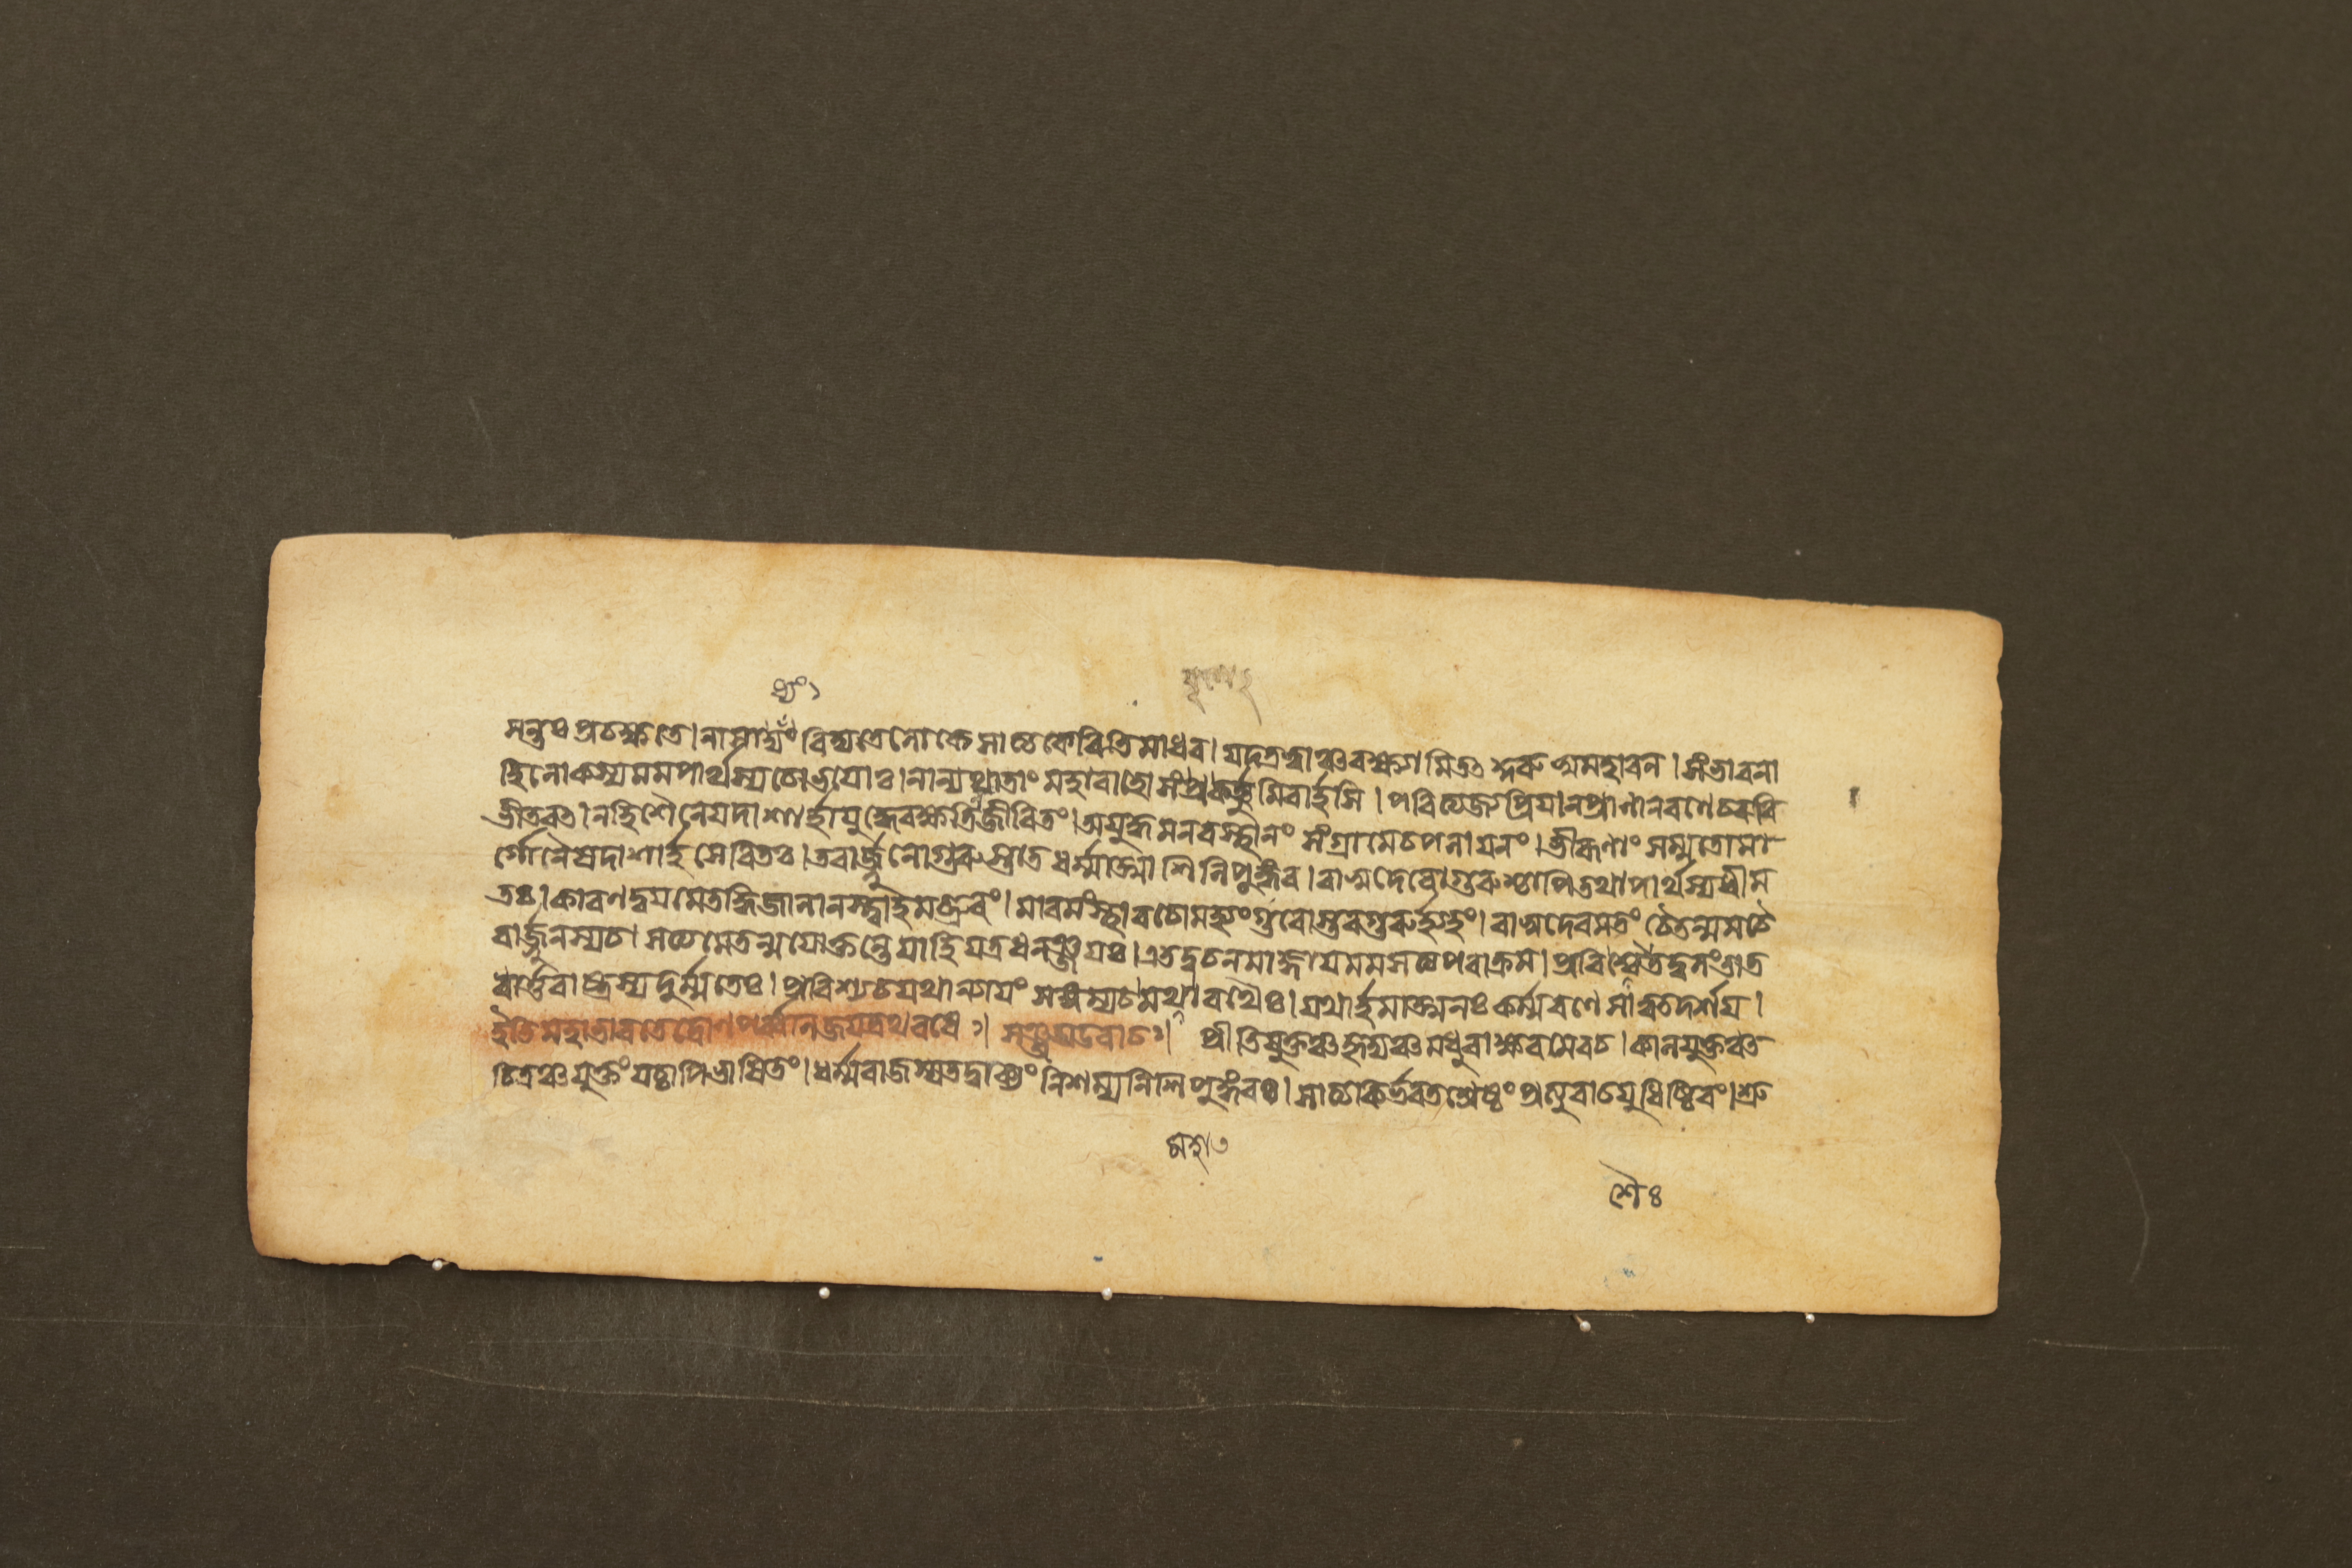 সন্তঃ প্রচক্ষতে। নাসাধ্যং বিদ্যতে লোকে সাত্যকেরিতি মাধব। মহাবল। সংভাবনা
হি লোকস্য মম পার্থস্য চোভয়োঃ। নান্যথা তাং মহাবাহো সংপ্রকর্ত্তুমিবার্হসি। পরিত্যজ্য প্রিয়ান প্রাণান রণে চর বি
ভীতবৎ। নহি শৈনেয় দাশার্হা যুদ্ধে রক্ষন্তি জীবিতং। অযুদ্ধমনবস্থানং সংগ্রামে চ পলায়নং। ভীরূণাং সম্মতো মা
র্গো নৈষ দাশার্হসেবিতঃ। তবার্জ্জুনো গুরুস্তাত ধর্ম্মাত্মা শিনিপুঙ্গব। বাসুদেবো গুরুশ্চাপি তথা পার্থস্য ধীম
তঃ। কারণদ্বয়মেতদ্ধি জানানস্ত্বাহমব্রুবং। মাবমংস্থা বচো মহ্যং গুরোস্তব গুরুর্হ্যহং। বাসুদেবমতং চৈতন্মম চৈ
বার্জ্জুনস্য চ। সত্যমেতন্ময়োক্তন্তে যাহি যত্র ধনঞ্জয়ঃ। এতদ্বচনমাজ্ঞায় মম সত্যপরাক্রম। প্রবিশৈতদ্বলং তাত
ধার্ত্তরাষ্ট্রস্য দুর্ম্মতেঃ। প্রবিশ্য চ যথান্যায়ং সঙ্গম্য চ মহারথৈঃ। যথার্হমাত্মনঃ কর্ম্ম রণে সাত্বত দর্শয়।
ইতি মহাভারতে দ্রোণপর্ব্বনি জয়দ্রথবধে ঃ। সঞ্জয় উবাচ ঃ। প্রীতিযুক্তঞ্চ হৃদ্যঞ্চ মধুরাক্ষরমেব চ। কালযুক্তঞ্চ
চিত্রঞ্চ যুক্তং যচ্চাপি ভাষিতং। ধর্ম্মরাজস্য তদ্বাক্যং নিশম্য শিনিপুঙ্গবঃ। সাত্যকির্ভরতশ্রেষ্ঠং প্রত্যুবাচ যুধিষ্ঠিরং। শ্রু
শৈঃ